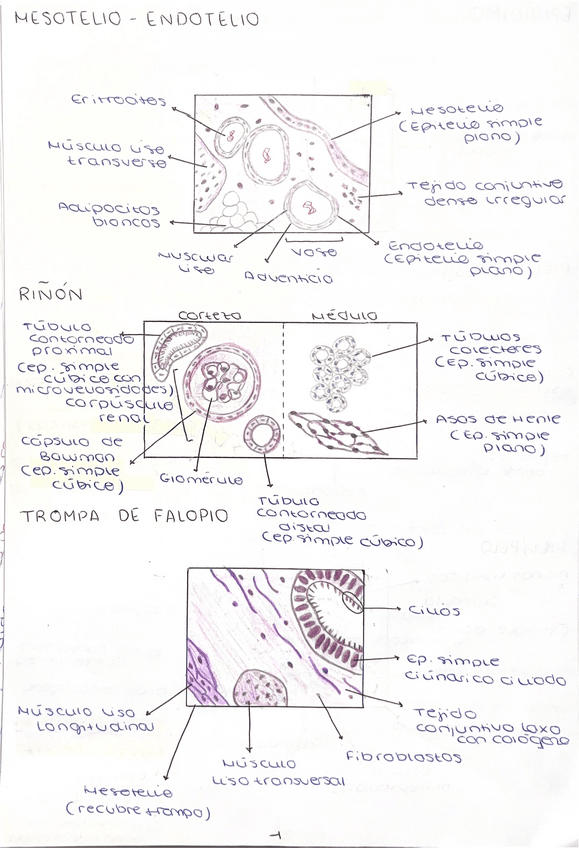 MESOTELIO - ENDOTELIO
Eritrocitos
Músculo liso
transverso
Adipocitos
blancos
Muscular
liso
Adventicia
Vaso
Mesotelio
(Epitelio simple
plano)
Tejido conjuntivo
denso irregular
Endotelio
(Epitelio simple
plano)
RIÑÓN
Corteza
Médula
Túbulo
contorneado
proximal
(ep. simple
cúbico con
microvevosidades)
corpúsculo
renal
Cápsula de
Bowman
(ep. simple
cúbico)
Glomérulo
Túbulo
contorneado
distal
(ep. simple cúbico)
Túbulos
colectores
(ep. simple
cúbico)
Asas de Henle
(ep. simple
plano)
TROMPA DE FALOPIO
Cilios
Ep. simple
cilíndrico ciliado
Tejido
conjuntivo laxo
con colágeno
Fibroblastos
Músculo
liso transversal
Músculo liso
longitudinal
Mesotelio
(recubre trompa)
1